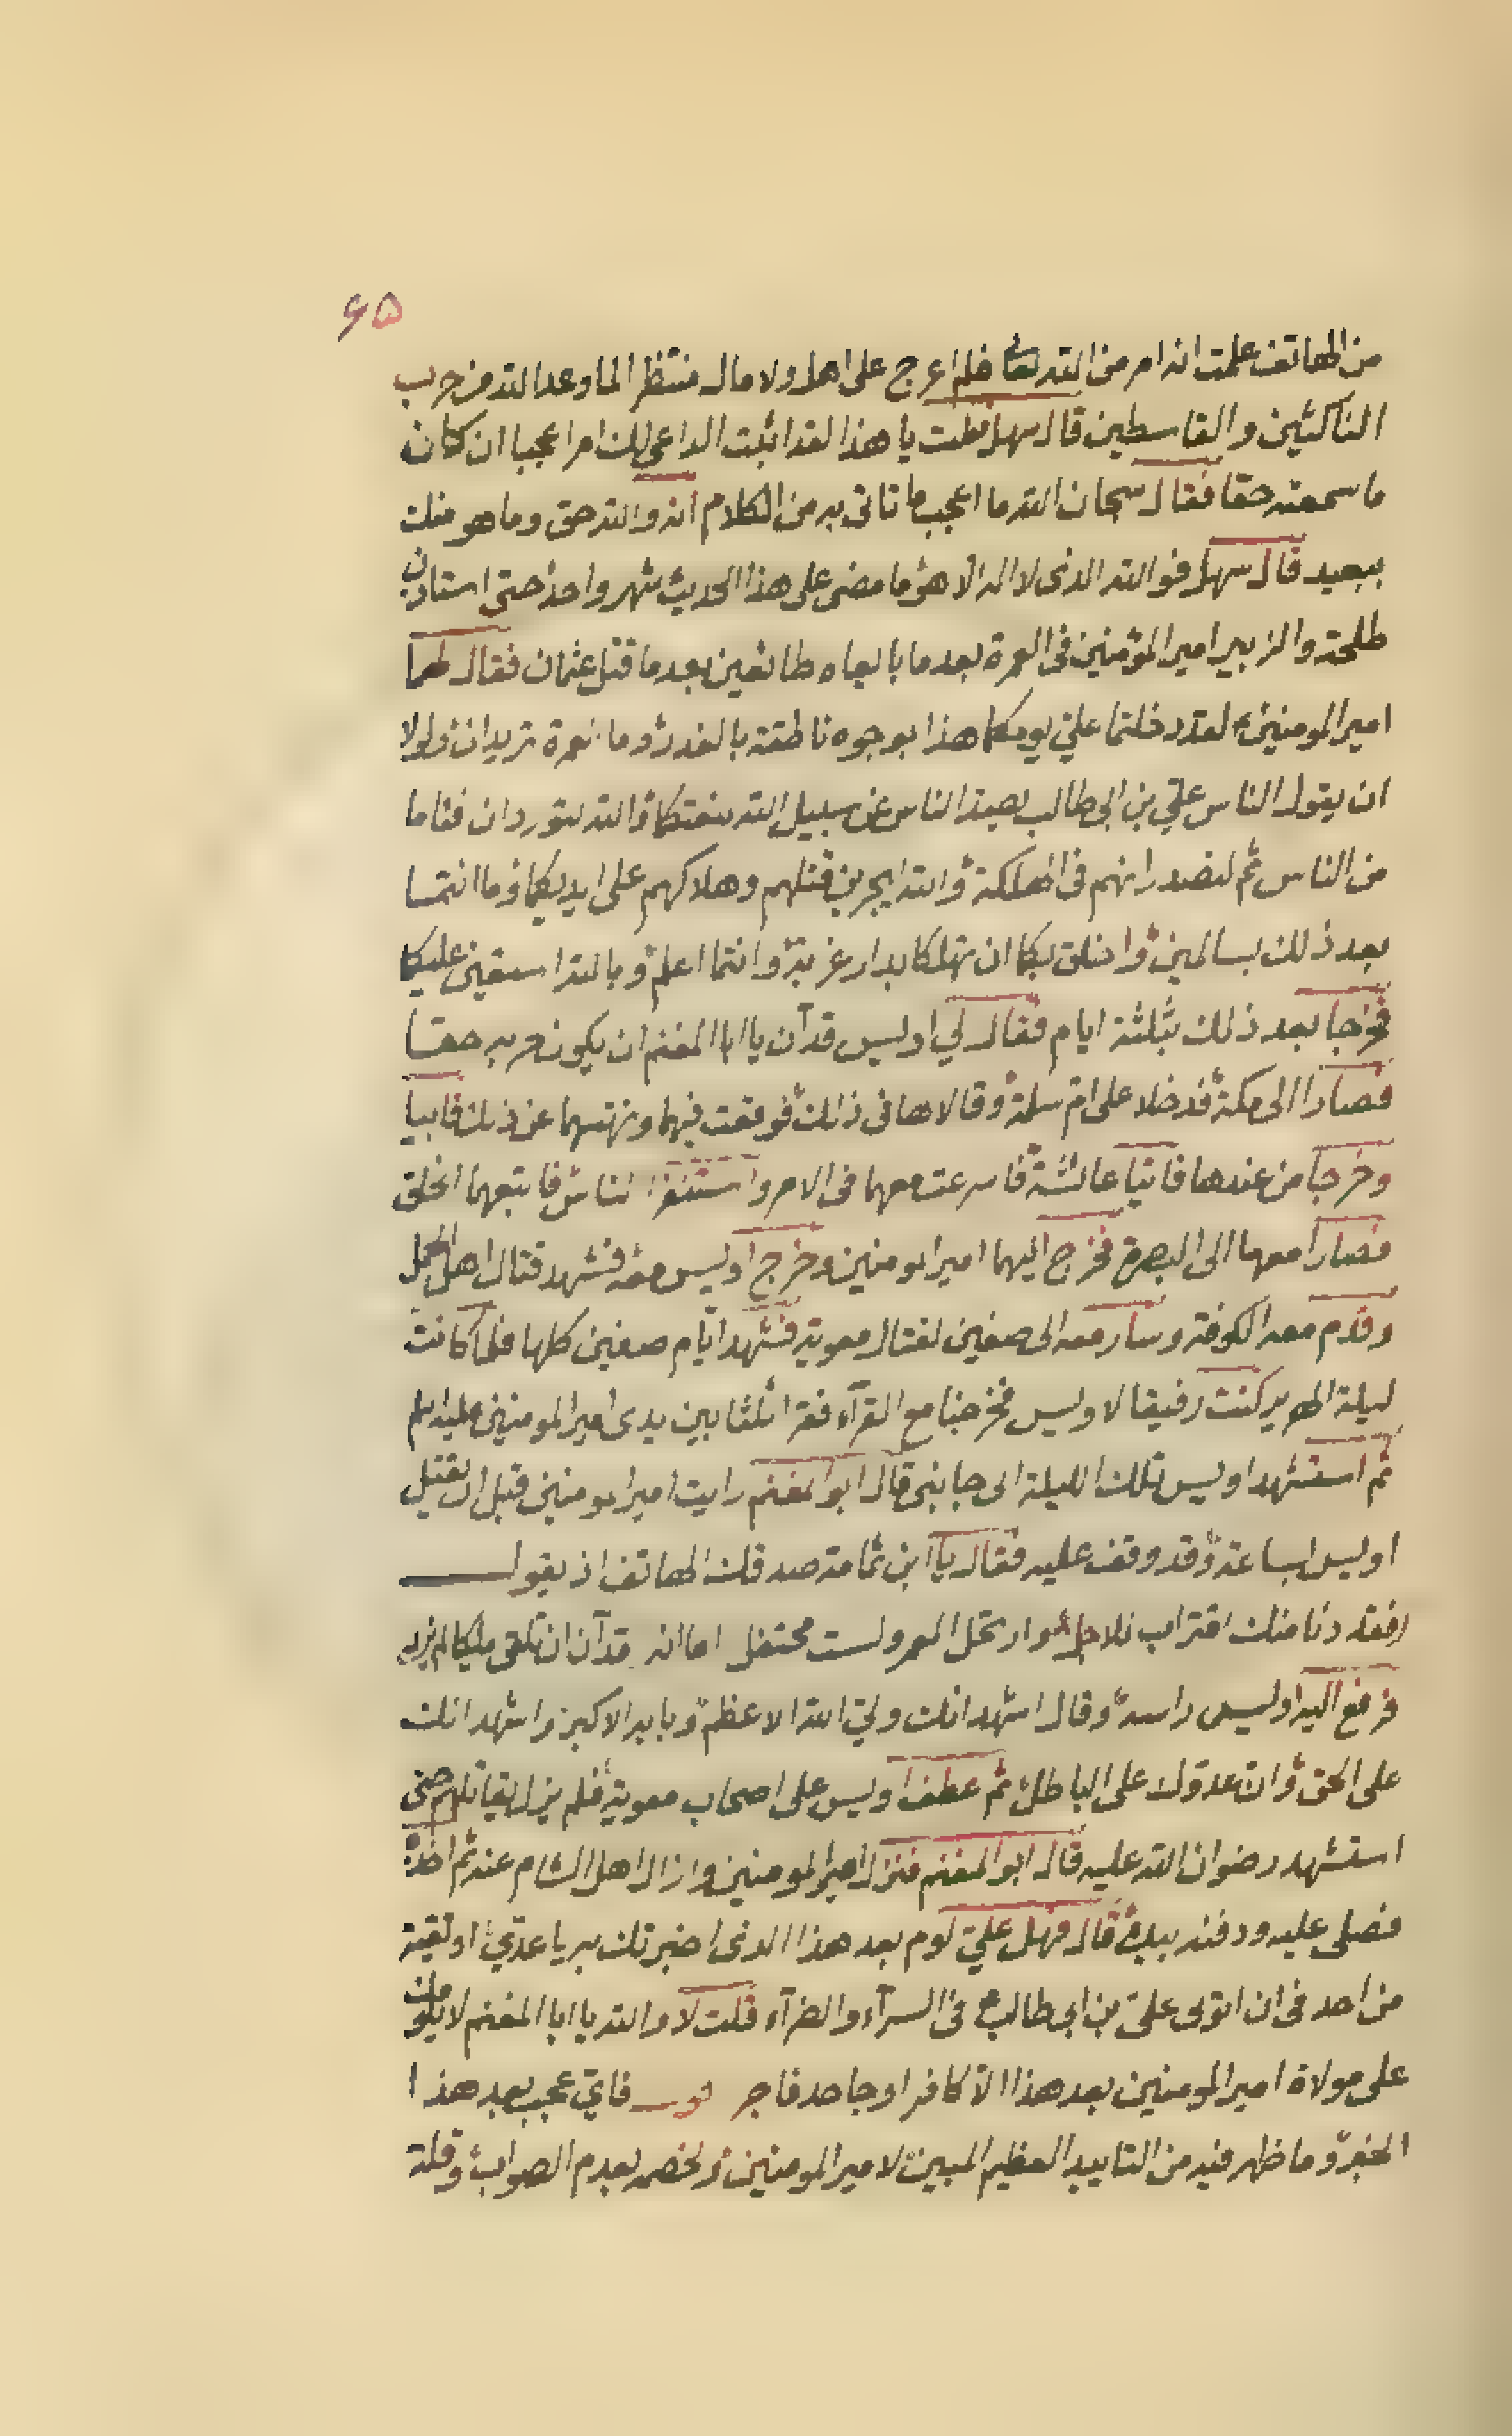 ۶۵
من الهاتف علمت انه امر من الله تعالى فلم اعرج على اهل ولا مال منتظر الما وعد الله من حرب
الناكثين والقاسطين قال سهل فقلت يا هذا لقد اثبت الداعي لك امرا عجبا ان كان
ما سمعته حقا فقال سبحان الله ما اعجب ما تاتي به من الكلام انه والله حق وما هو منك
ببعيد قال سهل فوالله الذى لا اله الا هو ما مضى على هذا الحديث شهر واحد حتى استاذن
طلحة والزبير امير المؤمنين في العمرة بعد ما بايعاه طائعين بعد ما قتل عثمان فقال لهما
امير المومنين لقد دخلتما علي يومكما هذا بوجوه ناطقة بالغدر وما عمرة تريدان ولولا
ان يقول الناس علي بن ابي طالب يصد الناس عن سبيل الله والله لتوردان فئاما
من الناس ثم لتصدرانهم في الهلكة والله ليجرين قتلهم وهلاكهم على ايديكما وما انتما
بعد ذلك بسالمين واخلق بكما ان تهلكا بدار غربة وانتما اعلم وبالله استعين عليكما
فخرجا بعد ذلك بثلثة ايام فقال لي اويس قد آن يا ابا المغنم ان يكون حربه حقا
فصارا الى مكة فدخلا على ام سلمة وقالا لها في ذلك فوقعت فيهما ونهتهما عن ذلك فابيا
وخرجا من عندها فاتيا عائشة فاسرعت معهما في الامر واستنفرا الناس فاتبعهما الخلق
فصارا معها الى البصرة فخرج اليهما امير المومنين وخرج اويس معه فشهد قتال اهل الجمل
وقدم معه الكوفة وسار معه الى صفين لقتال معوية فشهد ايام صفين كلها فلما كانت
ليلة الهرير كنت رفيقا لاويس فخرجنا مع القرآء فقرا ثلثا بين يدى امير المومنين عليه السلم
ثم استشهد اويس تلك الليلة الى جانبى قال ابو المغنم رايت امير المومنين قبل ان يقتل
اويس بساعة وقد وقف عليه فقال يا ابن ثمامة صدقك الهاتف اذ يقول
فقد دنا منك اقتراب للاجل وارتحل العمر ولست محتفل اما انه قد آن ان تلقى مليكا لم يزل
فرفع اليه اويس راسه وقال اشهد انك ولي الله الاعظم وبابه الاكبر واشهد انك
على الحق وان عدوك على الباطل ثم عطف اويس على اصحاب معوية فلم يزل يقاتلهم حتى
استشهد رضوان الله عليه قال ابو المغنم فنزل امير المومنين وازال اهل الشام عنه ثم اخذه
فصلى عليه ودفنه بيده قال فهل علي لوم بعد هذا الذى اخبرتك به يا عدي او بقية
من احد فى ان اتولى علي بن ابي طالب في السرآء والضرآء قلت لا والله يا ابا المغنم لا يلومك
على مولاة امير المومنين بعد هذا الا كافر او جاحد فاجر فاي عجب بعد هذا
الخبر وما ظهر فيه من التاييد العظيم المبين لامير المومنين ولخصمه بعدم الصواب وقلة